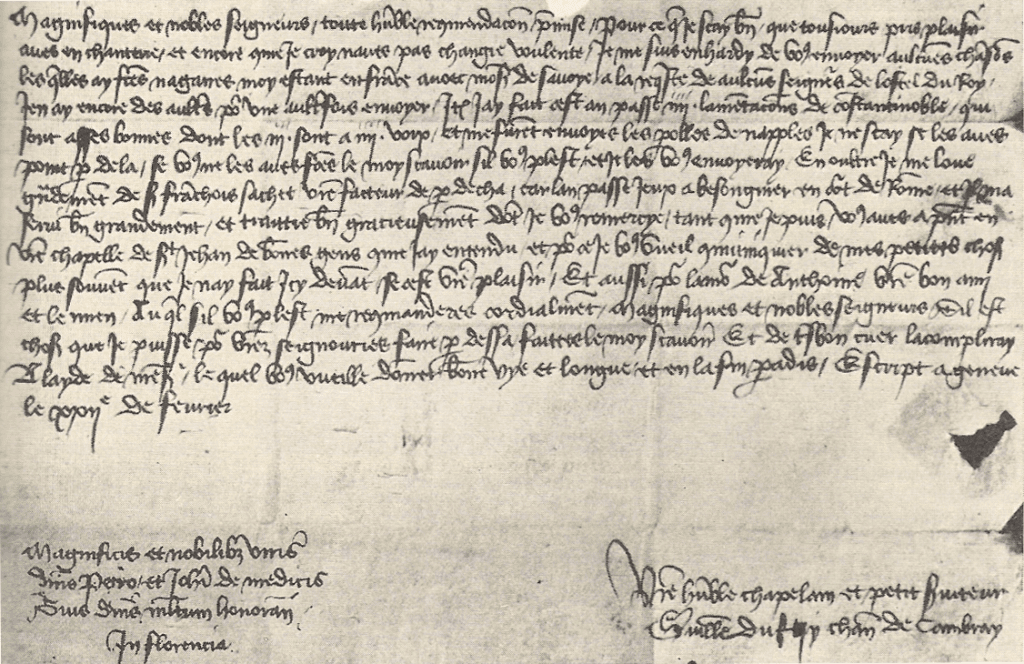 Magnifiques et nobles seigneurs, toute hūble rec̄mendacōn p̄mise. Pour ce q̄ Je scay bn̄ que tousiours pris plaisir
aves en chanterie, et encore que Je croy naves pas changie voulente, Je me suis enhardy de voꝰ envoyer aulcunes chāsōs
les q̄lles ay f̄tes nagaires moy estant en frāce avec monsr̄ de savoye a la req̄ste de aulcūs seignr̄s de lostel du Roy,
Jen ay encore des aultr̄s po᷑ une aultrfois envoyer, Itē Jay fait cest an passe iiij lamentacōns de cōstantinoble, qui
sont asses bonnes dont les iij sont a iiij voix, et me furent envoyes les polles de napples Je ne scay se les aves
point p dela, se voꝰ ne les aves f̄tes le moy scavoir sil voꝰ plest, et Je les voꝰ envoyeray. En oultre Je me loue
grādemēt de sr̄ frāchois sachet vr̄e facteur de p decha, car lan passe Jeux a besongnier en crt̄ de Rōme, et il ma
servi bn̄ grandement, et traittie bn̄ gracieusemēt dōt Je voꝰ remercye, tant que Je puis, voꝰ aves a p̄nt en
vr̄e chapelle de st̄ Jehan de bōnes gens que Jay entendu et po᷑ ce Je voꝰ vueil cōmūniquer de mes petites choses
plus souvēt que Je nay fait Icy devāt se cest vr̄e plaisir, Et aussi po᷑ lamo᷑ de Anthoine vr̄e bon ami
et le mien, Au q̄l sil voꝰ plest, me rec̄manderes cordialmēt, Magnifiques et nobles seigneurs Sil est
chose que Je puisse po᷑ vr̄ez seignouries faire p dessa faittes le moy scavoir Et de tsbon cuer lacompliray
A layde de nr̄e sr̄, le quel voꝰ vueille dōner bōne vye et longue, et en la fin paradis, Escript a geneve
le xxijᵉ de fevrier
Magnificis et nobilibꝫ viris
dn̄is Petro et Joh̄i de medicis
Suis dn̄is m̄ltum honoran̄
In florencia.
Vr̄e hūble chapelain et petit s̄viteur
Guill̄e dufay chan̄ de Cambray